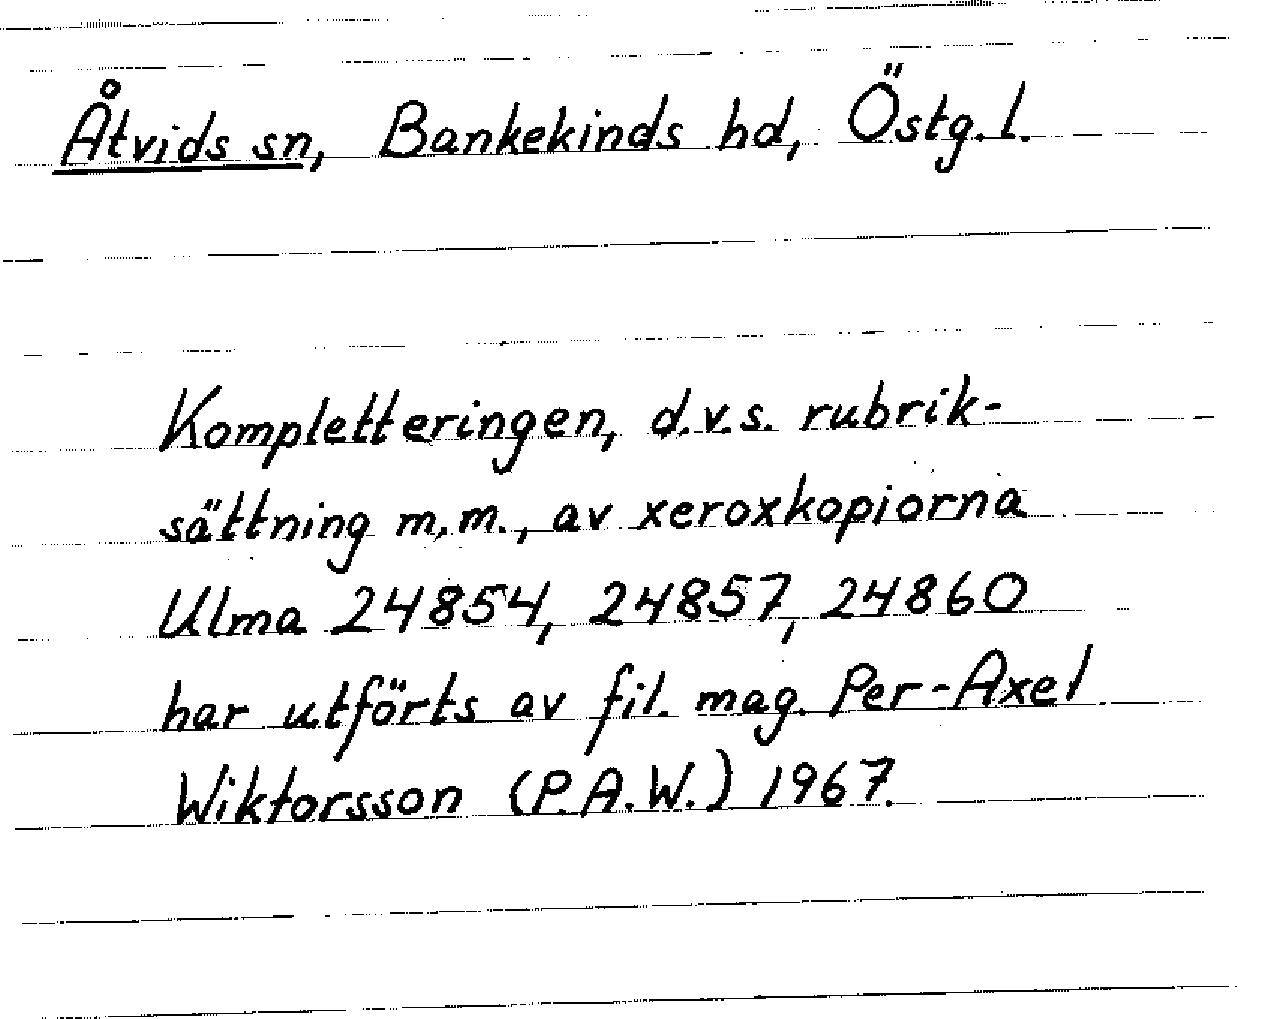 Åtvids sn, Bankekinds hd, Östg. l.
Kompletteringen, d.v.s. rubrik-
sättning m.m., av xeroxkopiorna
Ulma 24854, 24857, 24860
har utförts av fil. mag. Per-Axel
Wiktorsson (P.A.W.) 1967.